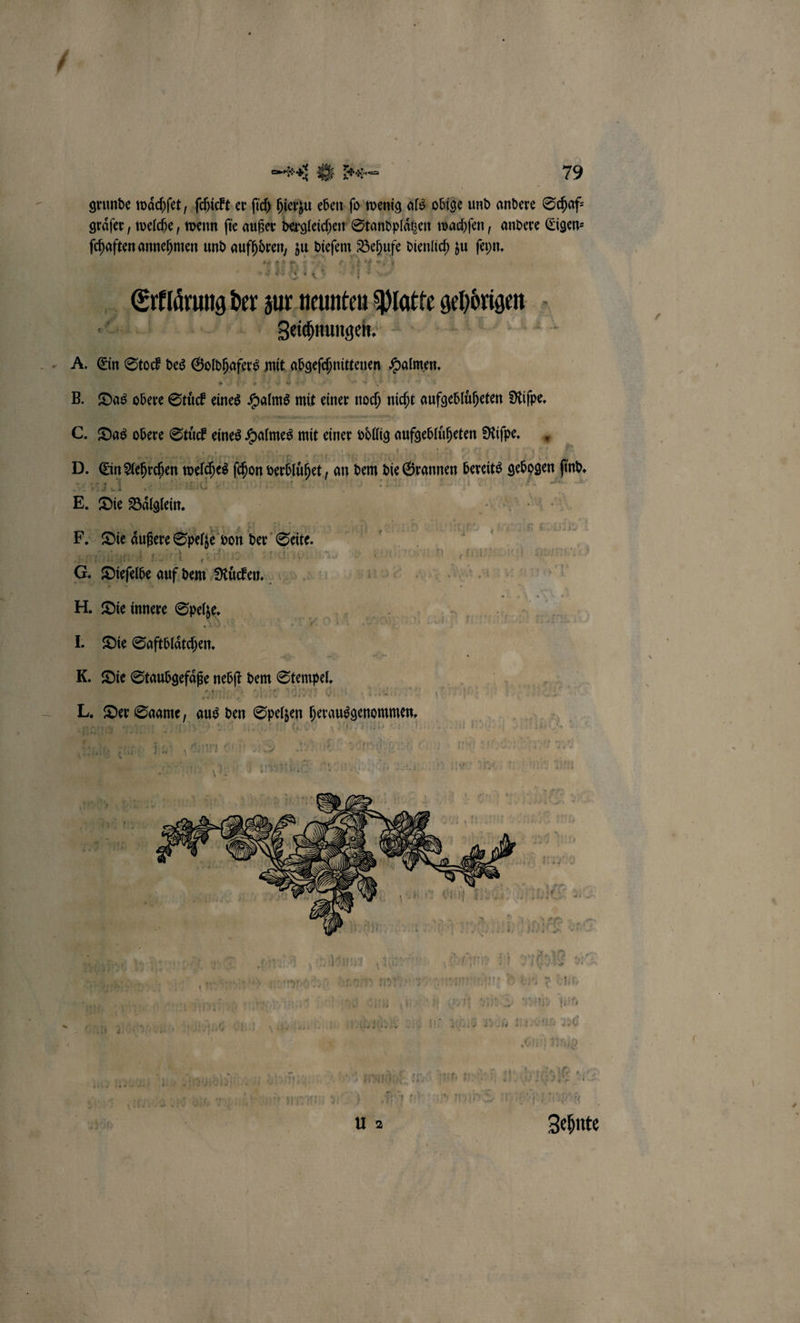 79
grunde wächset, schickt er sich hierzu eben so wenig als obige und andere Schaf=
gräser, welche, wenn sie außer dergleichen Standplätzen wachsen, andere Eigen=
schaften annehmen und aufhören, zu diesem Behufe dienlich zu seyn.
Erklärung der zur neunten Platte gehörigen
Zeichnungen.
A. Ein Stock des Goldhafers mit abgeschnittenen Halmen.
B. Das obere Stück eines Halms mit einer noch nicht aufgeblüheten Rispe.
C. Das obere Stück eines Halmes mit einer völlig aufgeblüheten Rispe.
D. Ein Aehrchen welches schon verblühet, an dem die Grannen bereits gebogen sind.
E. Die Bälglein.
F. Die äußere Spelze von der Seite.
G. Dieselbe auf dem Rücken.
H. Die innere Spelze.
I. Die Saftblätchen.
K. Die Staubgefäße nebst dem Stempel.
L. Der Saame, aus den Spelzen herausgenommen.
U 2
Zehnte